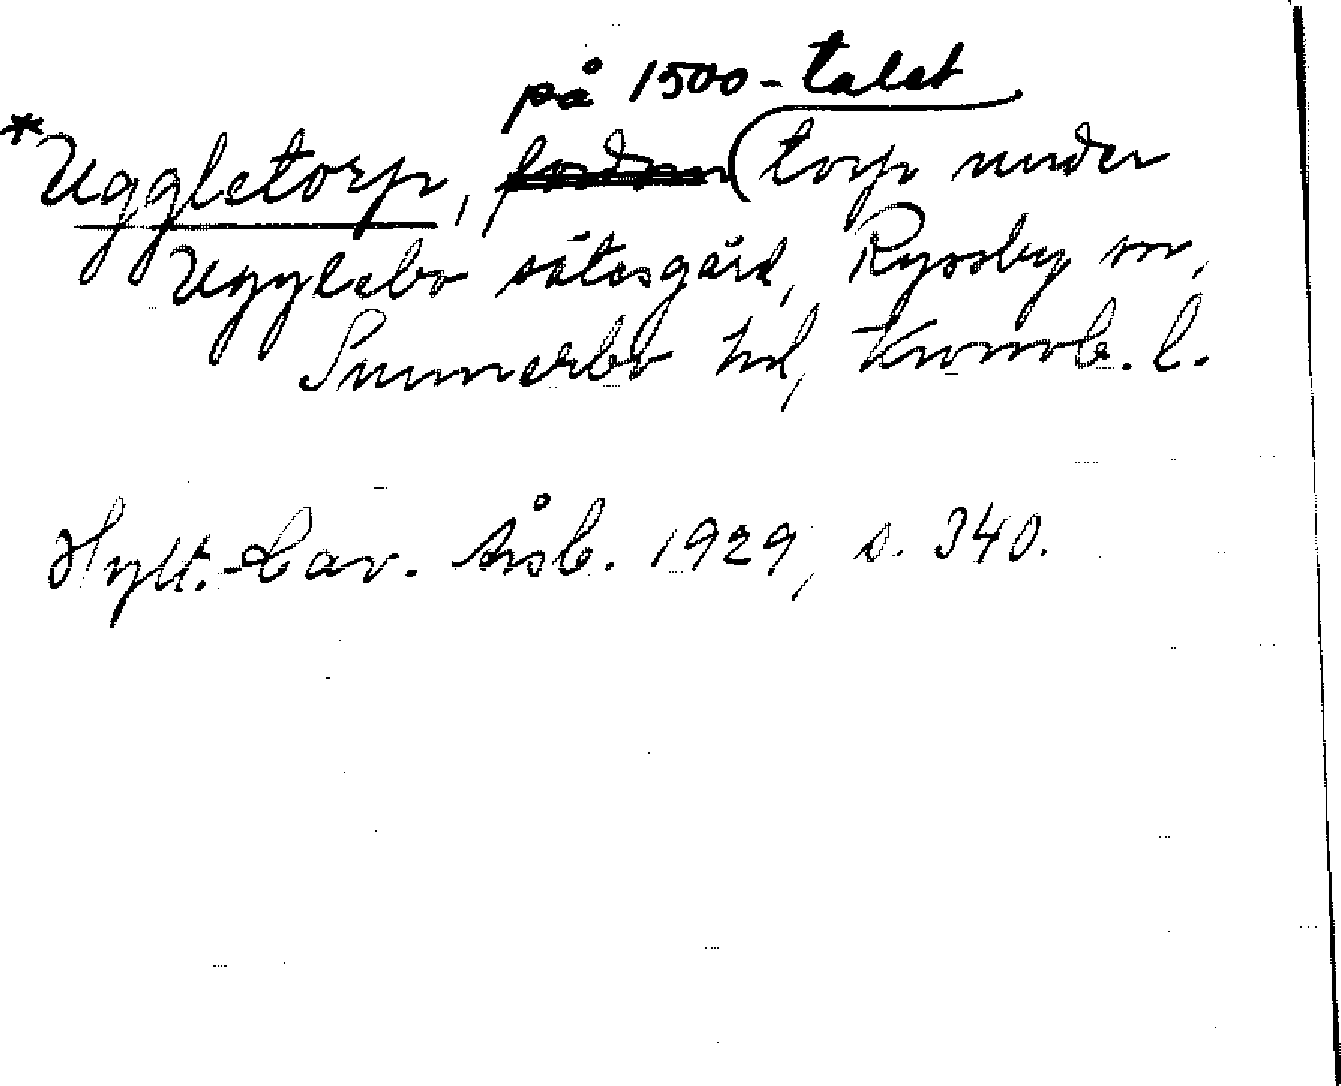 på 1500-talet
*Uggletorp, fordom torp under
Ugglebo sätesgård, Ryssby sn,
Sunnerbo hd, Kronob. l.
Hylt.-Cav. Årsb. 1929, s. 340.